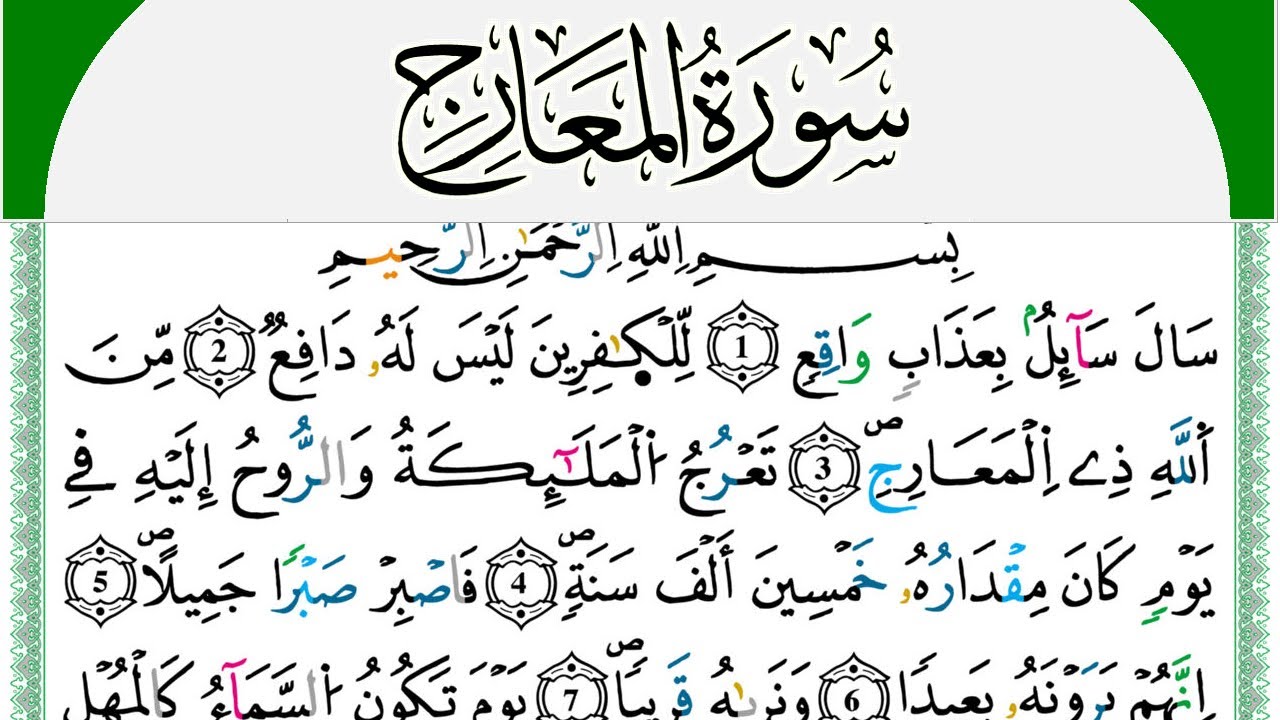 سُورَةُ الْمَعَارِجِ
بِسْمِ اِللَّهِ اِلرَّحْمَٰنِ اِلرَّحِيمِ
سَالَ سَآئِلُۢ بِعَذَابٍ وَاقِعٍ 1 لِّلْكَٰفِرِينَ لَيْسَ لَهُۥ دَافِعٌ 2 مِّنَ
اَللَّهِ ذِے اِلْمَعَارِجِۖ 3 تَعْرُجُ اُلْمَلَٰٓئِكَةُ وَالرُّوحُ إِلَيْهِ فِے
يَوْمٍ كَانَ مِقْدَارُهُۥ خَمْسِينَ أَلْفَ سَنَةٍۖ 4 فَاصْبِرْ صَبْرًا جَمِيلًاۖ 5
اِنَّهُمْ يَرَوْنَهُۥ بَعِيدًا 6 وَنَرٰىهُ قَرِيبًاۖ 7 يَوْمَ تَكُونُ اُلسَّمَآءُ كَالْمُهْلِ